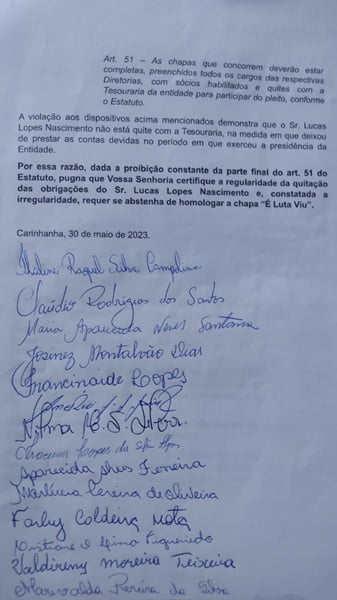 Art. 51 – As chapas que concorrem deverão estar
completas, preenchidos todos os cargos das respectivas
Diretorias, com sócios habilitados e quites com a
Tesouraria da entidade para participar do pleito, conforme
o Estatuto.
A violação aos dispositivos acima mencionados demonstra que o Sr. Lucas
Lopes Nascimento não está quite com a Tesouraria, na medida em que deixou
de prestar as contas devidas no período em que exerceu a presidência da
Entidade.
Por essa razão, dada a proibição constante da parte final do art. 51 do
Estatuto, pugna que Vossa Senhoria certifique a regularidade da quitação
das obrigações do Sr. Lucas Lopes Nascimento e, constatada a
irregularidade, requer se abstenha de homologar a chapa “É Luta Viu”.
Carinhanha, 30 de maio de 2023.
Raquel Silva
Claudio Rodrigues dos Santos
Maria Aparecida Neves Santana
Josinez Montalvão Dias
Francinaide Lopes
Lopes da
Aparecida Alves Ferreira
Pereira de Oliveira
Farley Mota
Figueiredo
Moreira Teixeira
Pereira da Silva